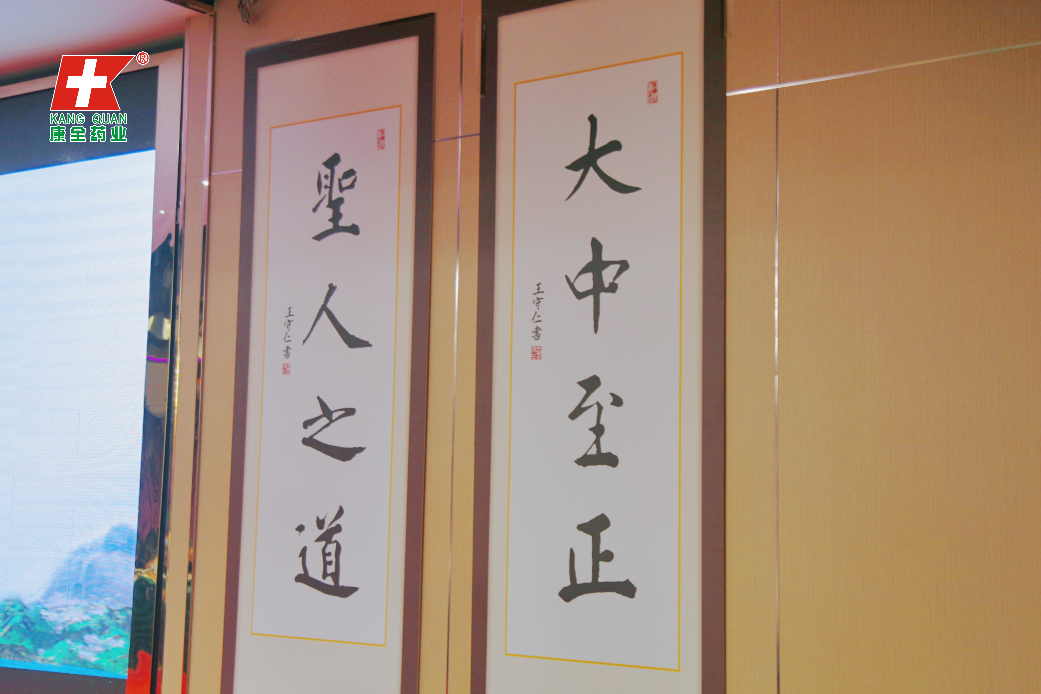 KANG QUAN
康全药业
®
大中至正
王守仁書
聖人之道
王守仁書